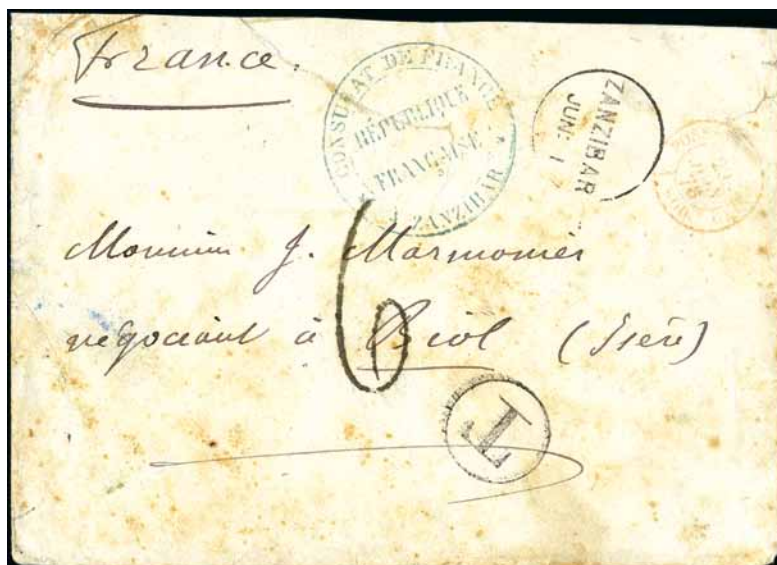 France.
CONSULAT DE FRANCE
RÉPUBLIQUE
FRANÇAISE
A ZANZIBAR
ZANZIBAR
JUN: 1
6
Monsieur J. Marmonier
négociant à Biol (Isère)
T